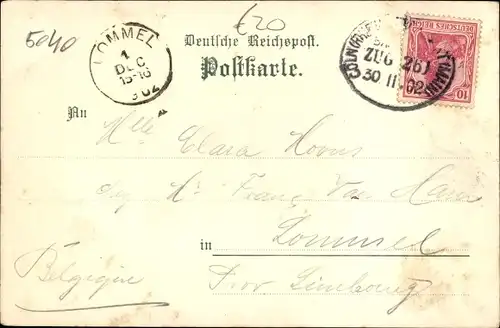 5040
€20
LOMMEL
1
DEC
15-16
02
Deutsche Reichspost.
Postkarte.
ZUG 261
30 11 02
DEUTSCHES REICH
10
An
Mlle Clara
Mr Franç Van
in Lommel
Belgique
Prov Limbourg